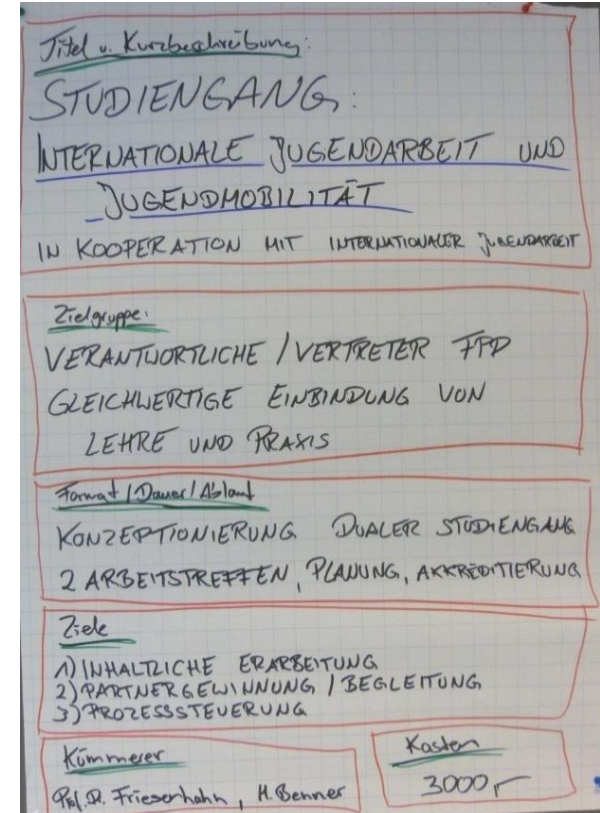 Titel u. Kurzbeschreibung:
STUDIENGANG:
INTERNATIONALE JUGENDARBEIT UND
JUGENDMOBILITÄT
IN KOOPERATION MIT INTERNATIONALER JUGENDARBEIT
Zielgruppe:
VERANTWORTLICHE / VERTRETER FFD
GLEICHWERTIGE EINBINDUNG VON
LEHRE UND PRAXIS
Format / Dauer / Ablauf
KONZEPTIONIERUNG DUALER STUDIENGANG
2 ARBEITSTREFFEN, PLANUNG, AKKREDITIERUNG
Ziele
1) INHALTLICHE ERARBEITUNG
2) PARTNERGEWINNUNG / BEGLEITUNG
3) PROZESSSTEUERUNG
Kümmerer
Prof. Dr. Friesenhahn, H. Benner
Kosten
3000,-